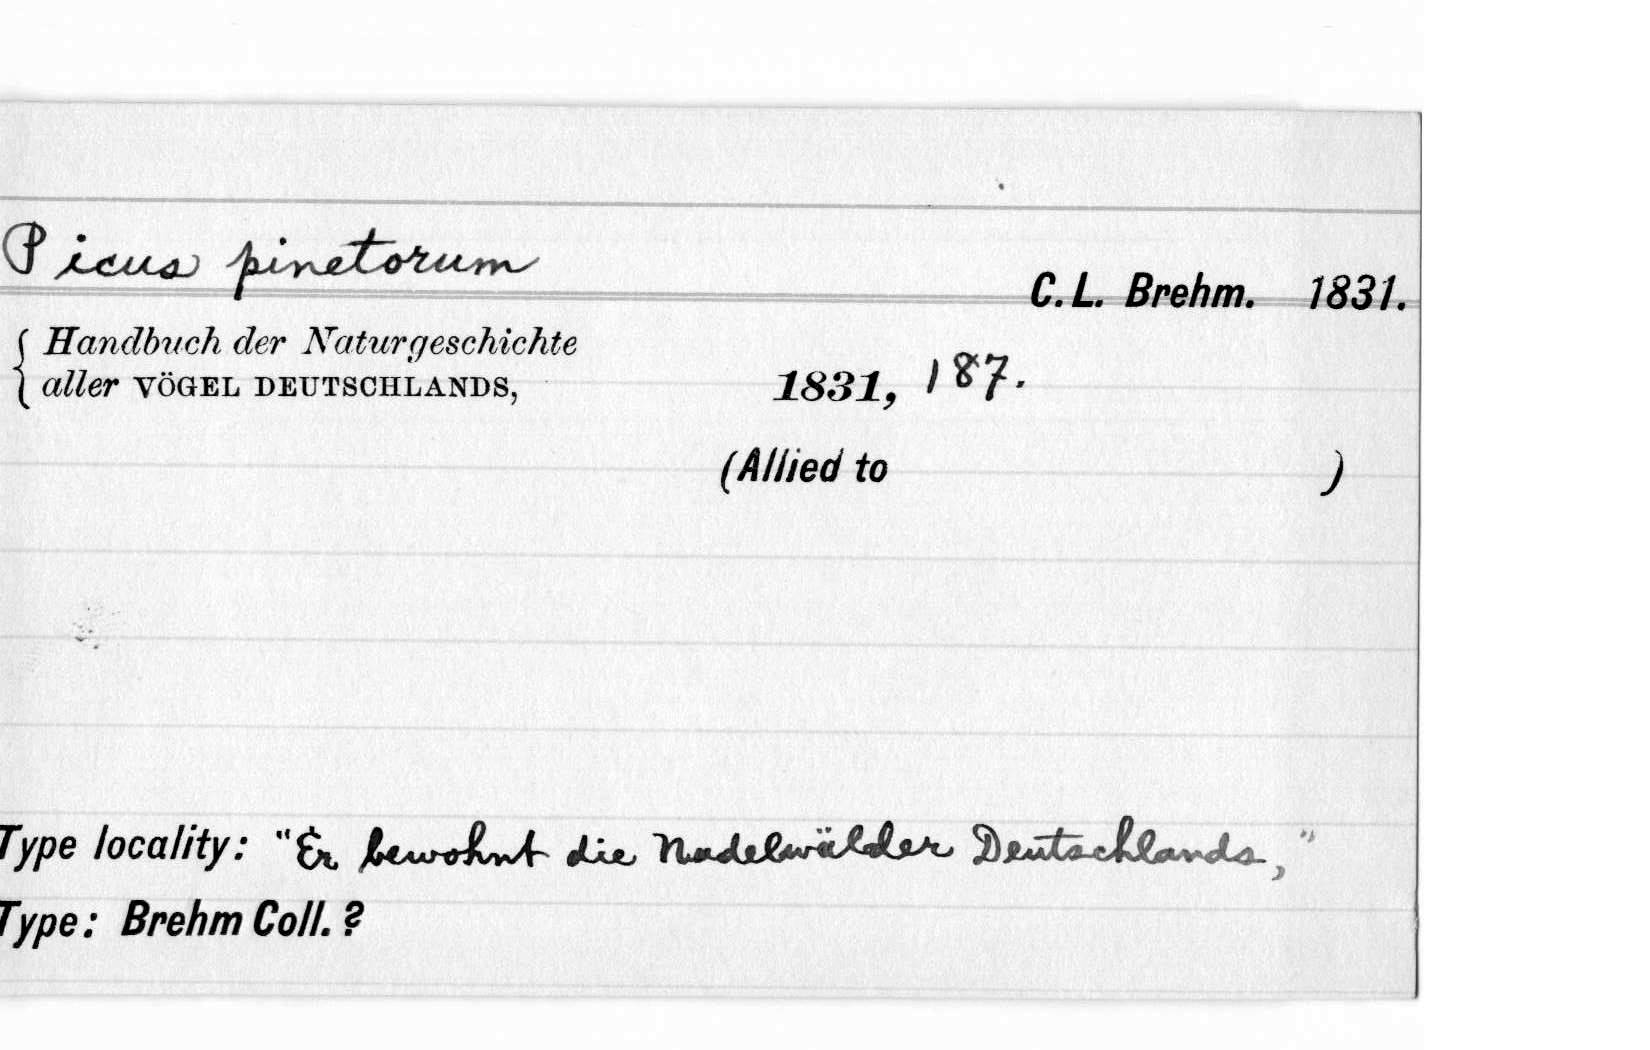 Picus pinetorum
C. L. Brehm. 1831.
Handbuch der Naturgeschichte
aller VÖGEL DEUTSCHLANDS, 1831, 187.
(Allied to )
Type locality: "Er bewohnt die Nadelwälder Deutschlands,"
Type: Brehm Coll. ?